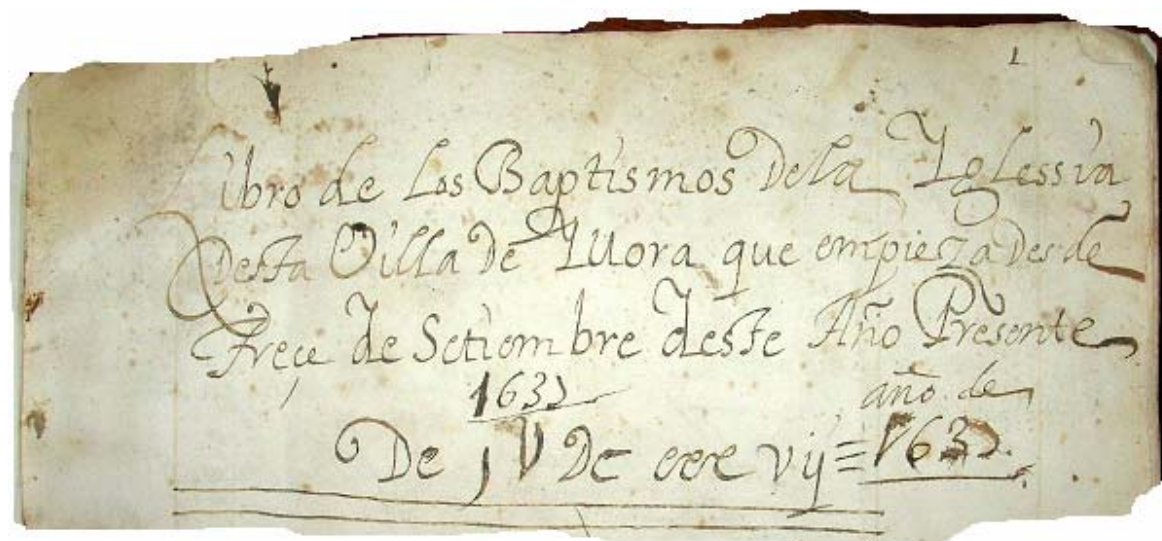 1
Libro de Los Baptismos Dela Yglessia
Desta Villa De Yllora que empieza Desde
Treçe de Setiembre deste Año Presente
1637 año de
De j U Dc xxx vij = 1637.